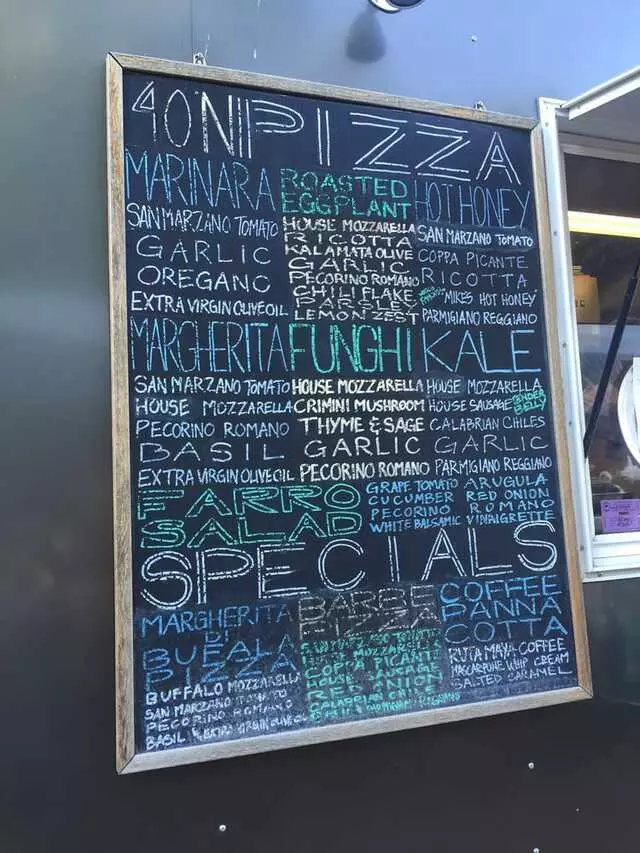 40N PIZZA
MARINARA
SAN MARZANO TOMATO
GARLIC
OREGANO
EXTRA VIRGIN OLIVE OIL
ROASTED
EGGPLANT
HOUSE MOZZARELLA
RICOTTA
KALAMATA OLIVE
GARLIC
PECORINO ROMANO
CHILI FLAKE
PARSLEY
LEMON ZEST
HOT HONEY
SAN MARZANO TOMATO
COPPA PICANTE
RICOTTA
"MIKES HOT HONEY"
PARMIGIANO REGGIANO
MARGHERITA
SAN MARZANO TOMATO
HOUSE MOZZARELLA
PECORINO ROMANO
BASIL
EXTRA VIRGIN OLIVE OIL
FUNGHI
HOUSE MOZZARELLA
CRIMINI MUSHROOM
THYME & SAGE
GARLIC
PECORINO ROMANO
KALE
HOUSE MOZZARELLA
HOUSE SAUSAGE
CALABRIAN CHILES
GARLIC
PARMIGIANO REGGIANO
FARRO
SALAD
GRAPE TOMATO ARUGULA
CUCUMBER RED ONION
PECORINO ROMANO
WHITE BALSAMIC VINAIGRETTE
SPECIALS
MARGHERITA
DI
BUFALA
PIZZA
BUFFALO MOZZARELLA
SAN MARZANO TOMATO
PECORINO ROMANO
BASIL & EXTRA VIRGIN OLIVE OIL
PIZZA
SAN MARZANO TOMATO
MOZZARELLA
COPPA PICANTE
HOUSE SAUSAGE
RED ONION
CALABRIAN CHILE
COFFEE
PANNA
COTTA
RUTA MAYA COFFEE
MASCARPONE WHIP CREAM
SALTED CARAMEL